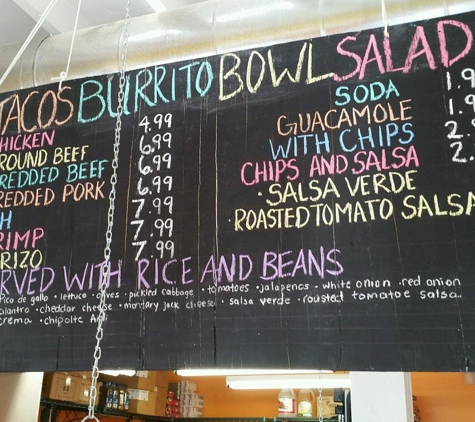 TACOS BURRITO BOWL SALAD
HICKEN 4.99
ROUND BEEF 6.99
REDDED BEEF 6.99
REDDED PORK 6.99
H 7.99
RIMP 7.99
RIZO 7.99
SODA 1.9
GUACAMOLE 1.
WITH CHIPS 2.
CHIPS AND SALSA 2.
· SALSA VERDE
· ROASTED TOMATO SALSA
RVED WITH RICE AND BEANS
Pico de gallo · lettuce · olives · pickled cabbage · tomatoes · jalapenos · white onion · red onion
cilantro · cheddar cheese · montary jack cheese · salsa verde · rousted tomatoe salsa..
cremo · chipolte